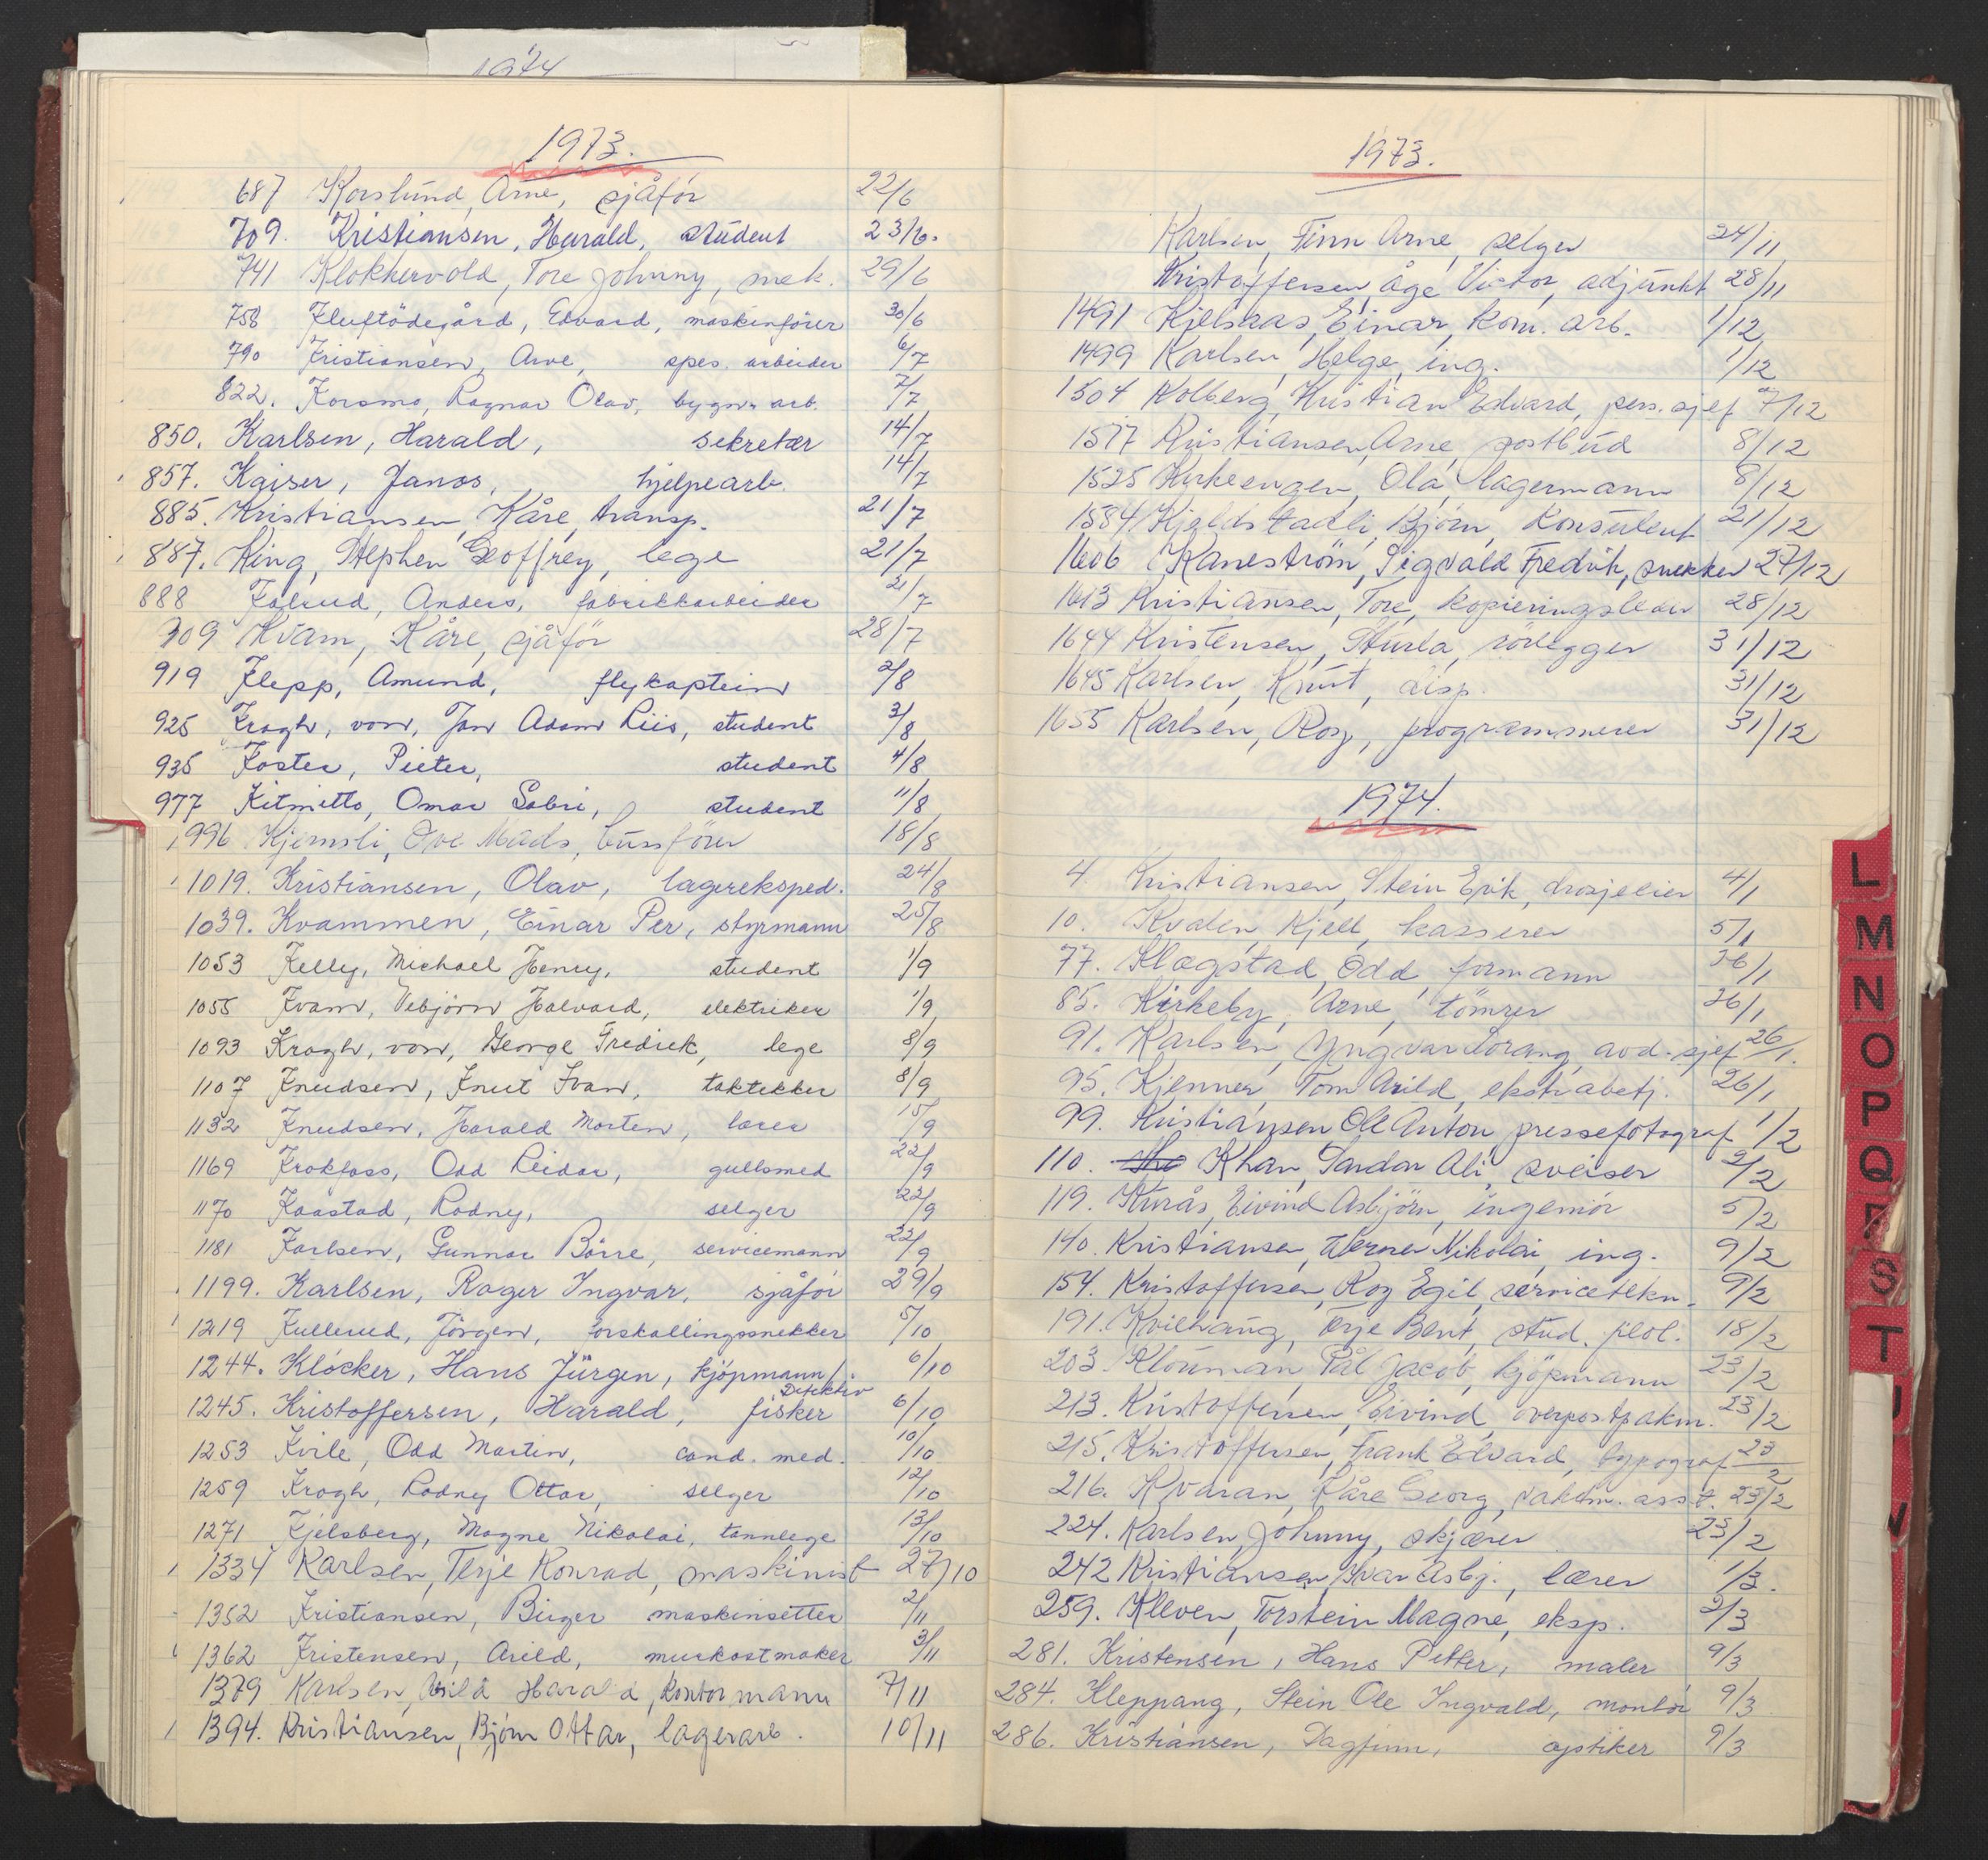 1974
1973.
687 Korslund, Arne, sjåför 22/6
709. Kristiansen, Harald, student 23/6.
741 Klokkervold, Tore Johnny, mek. 29/6
758 Kluftödegård, Edvard, maskinförer 30/6
790 Kristiansen, Arve, spes. arbeider 6/7
822. Korsmo, Ragnar Olav, bygn. arb. 7/7
850. Karlsen, Harald, sekretær 14/7
857. Kaiser, Janos, hjelpearb. 14/7
885. Kristiansen, Kåre, transp. 21/7
887. King, Stephen Geoffrey, lege 21/7
888 Kolrud, Anders, fabrikkarbeider 21/7
909 Kvam, Kåre, sjåför 28/7
919 Klepp, Amund, flykaptein 2/8
925 Krogh, von, Jan Adam Riis, student 3/8
935 Koster, Pieter, student 4/8
977 Kitmitto, Omar Sabri, student 11/8
996 Kjemsli, Ove Mads, bussförer 18/8
1019. Kristiansen, Olav, lagereksped. 24/8
1039. Kvammen, Einar Per, styrmann 25/8
1053 Kelly, Michael Henry, student 1/9
1055 Kvam, Vebjörn Halvard, elektriker 1/9
1093 Krogh, von, George Fredrik, lege 8/9
1107 Knudsen, Knut Ivan, taktekker 8/9
1132 Knudsen, Harald Morten, lærer 15/9
1169 Krokfoss, Odd Reidar, gullsmed 22/9
1170 Kaastad, Rodney, selger 22/9
1181 Karlsen, Gunnar Börre, servicemann 22/9
1199. Karlsen, Roger Ingvar, sjåför 29/9
1219 Kullerud, Jörgen, forskallingssnekker 5/10
1244. Klöcker, Hans Jürgen, kjöpmann/ Detektiv 6/10
1245. Kristoffersen, Harald, fisker 6/10
1253 Kvile, Odd Martin, cand. med. 10/10
1259 Krogh, Rodney Ottar, selger 12/10
1271 Kjelsberg, Magne Nikolai, tannlege 13/10
1334 Karlsen, Terje Konrad, maskinist 27/10
1352 Kristiansen, Birger maskinsetter 2/11
1362 Kristensen, Arild, murkostmaker 3/11
1379 Karlsen, Arild Harald, kontormann 7/11
1394. Kristiansen, Bjørn Ottar, lagerarb. 10/11
1973.
Karlsen, Finn Arne, selger 24/11
Kristoffersen, Åge Victor, adjunkt 28/11
1491 Kjelsaas, Einar, kom. arb. 1/12
1499 Karlsen, Helge, ing. 1/12
1504 Kolberg, Kristian Edvard, pers. sjef 7/12
1517 Kristiansen, Arne, postbud 8/12
1525 Kirkeengen, Ola, lagermann 8/12
1584 Kjeldstadli, Bjørn, konsulent 21/12
1606 Kanestrøm, Sigvald Fredrik, snekker 27/12
1613 Kristiansen, Tore, kopieringsleder 28/12
1644 Kristensen, Sturla, rörlegger 31/12
1645 Karlsen, Knut, disp. 31/12
1655 Karlsen, Roy, programmerer 31/12
1974.
4. Kristiansen, Stein Erik, drosjeeier 4/1
10. Kvalen, Kjell, kasserer 5/1
77. Klægstad, Odd, formann 26/1
85. Kirkeby, Arne, tömrer 26/1
91. Karlsen, Yngvar Lorang, avd. sjef 26/1.
95. Kjenner, Tom Arild, ekstrabetj. 26/1
99. Kristiansen Ole Anton pressefotograf 1/2
110. Khan, Sardar Ali, sveiser 2/2
119. Kurås, Eivind Asbjörn, ingeniör 5/2
140. Kristiansen, Werner Nikolai, ing. 9/2
154. Kristoffersen, Roy Egil, servicetekn. 9/2
191. Kvilhaug, Terje Bent, stud. filol. 18/2
203. Klouman, Pål Jacob, kjöpmann 23/2
213. Kristoffersen, Eivind, overpostpakm. 23/2
215. Kristoffersen, Frank Edvard, typograf 23/2
216. Kjvaran, Kåre Georg, vaktm. asst. 23/2
224. Karlsen, Johnny, skjærer 23/2
242 Kristiansen, Ivar Asbj., lærer 1/3.
259. Kleven, Torstein Magne, eksp. 2/3
281. Kristensen, Hans Petter, maler 9/3
284. Kleppang, Stein Ole Ingvald, montör 9/3
286. Kristiansen, Dagfinn, optiker 9/3
L
M
N
O
P
Q
R
S
T
U
V